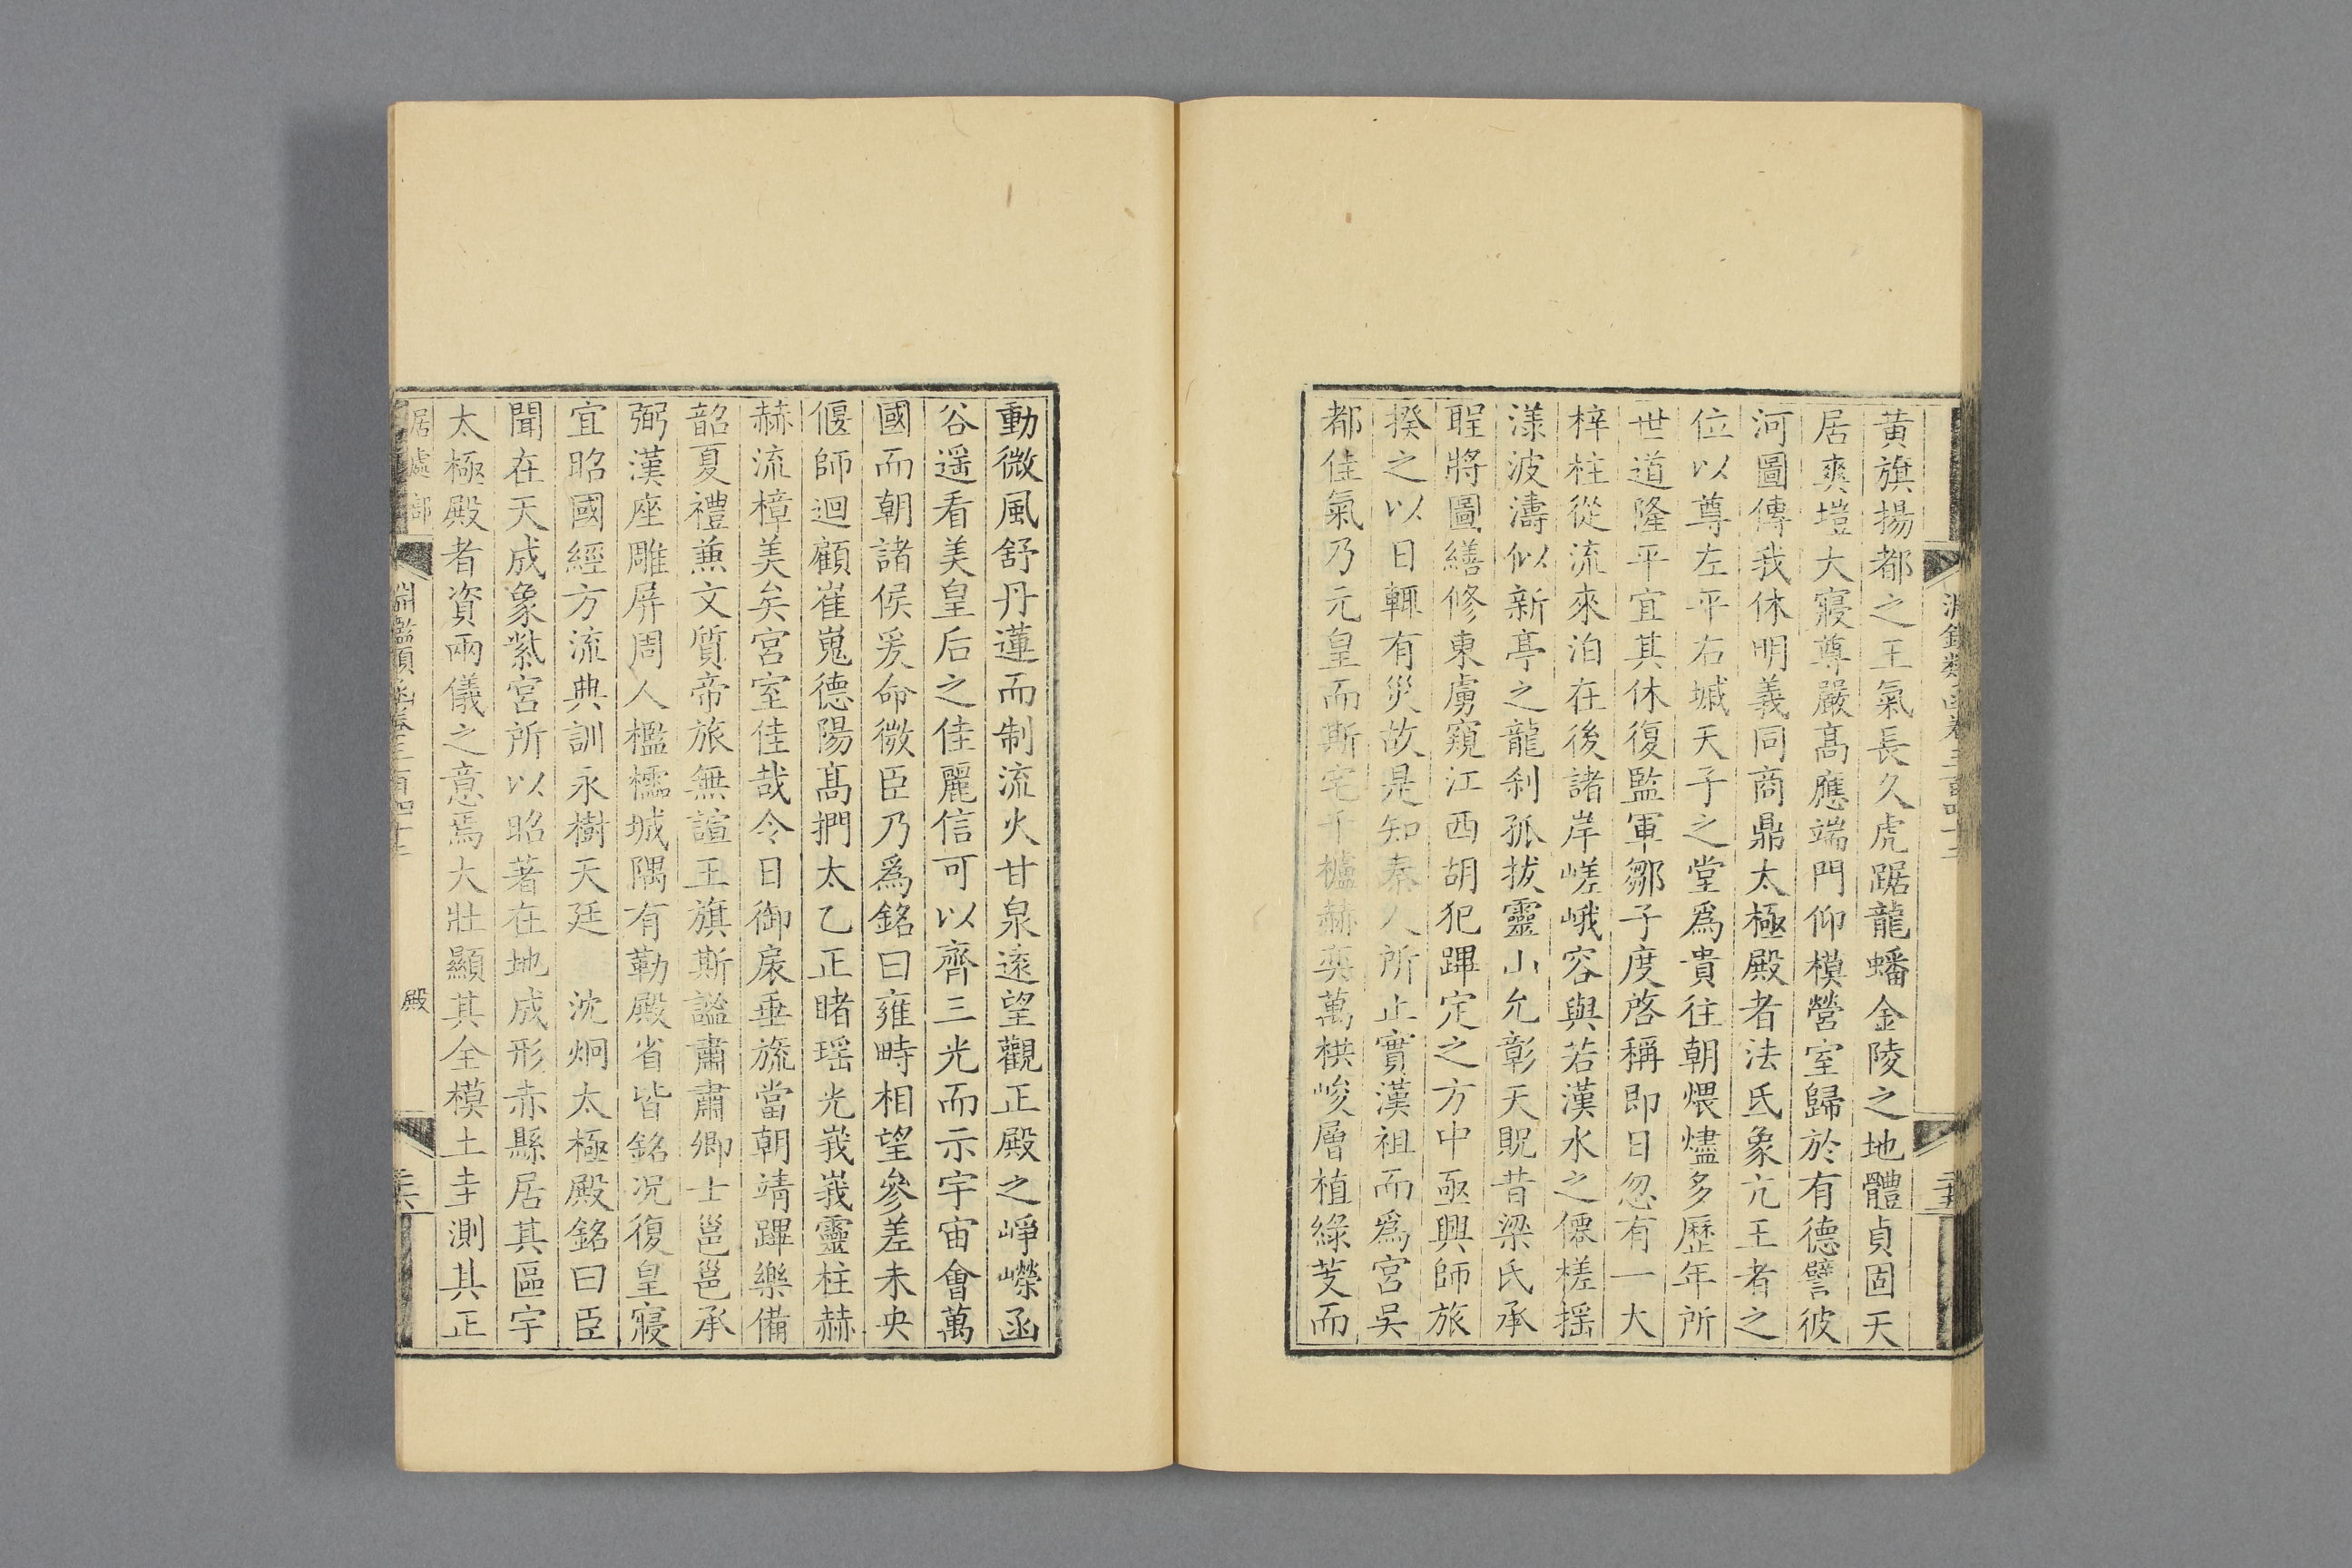 黄旗揚都之王氣長久虎踞龍蟠金陵之地體貞固天
居爽塏大寢尊嚴髙應端門仰模營室歸於有德譬彼
河圖傳我休明義同商鼎太極殿者法氐象亢王者之
位以尊左平右墄天子之堂爲貴往朝煨燼多歷年所
世道隆平宜其休復監軍鄒子度啓稱即日忽有一大
梓柱從流來泊在後諸岸嵯峨容與若漢水之僊槎摇
漾波濤似新亭之龍刹孤拔靈山允彰天貺昔梁氏承
聖將圖繕修東虜窺江西胡犯蹕定之方中亟興師旅
揆之以日輒有災故是知秦人所止實漢祖而爲宮吳
都佳氣乃元皇而斯宅千櫨赫奕萬栱峻層植綠芰而
淵鑑類函卷三百四十二
動微風舒丹蓮而制流火甘泉逺望觀正殿之崢嶸函
谷遥看美皇后之佳麗信可以齊三光而示宇宙會萬
國而朝諸侯爰命微臣乃爲銘曰雍畤相望參差未央
偃師迴顧崔嵬德陽髙捫太乙正睹瑶光峩峩靈柱赫
赫流樟美矣宮室佳哉令日御扆垂旒當朝靖蹕樂備
韶夏禮蕪文質帝旅無諠王旗斯謐肅肅卿士邕邕承
弼漢座雕屏周人檻檽城隅有勒殿省皆銘況復皇寢
宜昭國經方流典訓永樹天廷 沈炯太極殿銘曰臣
聞在天成象紫宮所以昭著在地成形赤縣居其區宇
太極殿者資兩儀之意焉大壯顯其全模土圭測其正
居處部 淵鑑類函卷三百四十二 殿